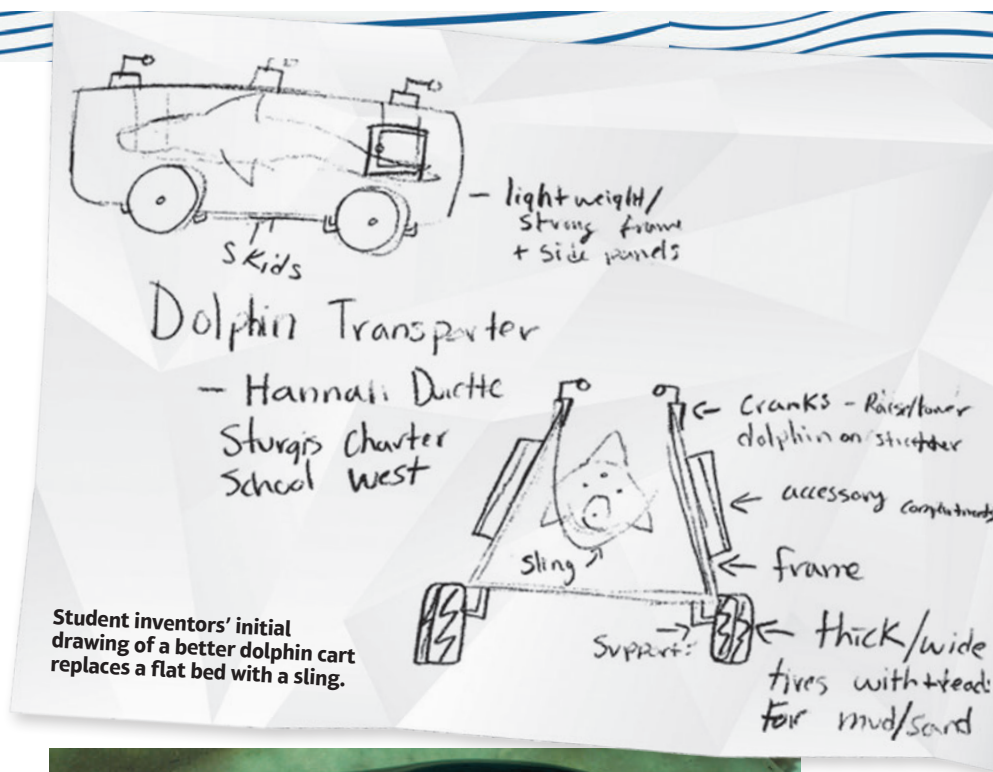 - lightweight/
strong frame
+ side panels
Skids
Dolphin Transporter
- Hannah
Sturgis Charter
School West
Cranks - Raise/lower
dolphin on stretcher
accessory compartments
sling
frame
Support
thick/wide
tires with tread
for mud/sand
Student inventors' initial
drawing of a better dolphin cart
replaces a flat bed with a sling.